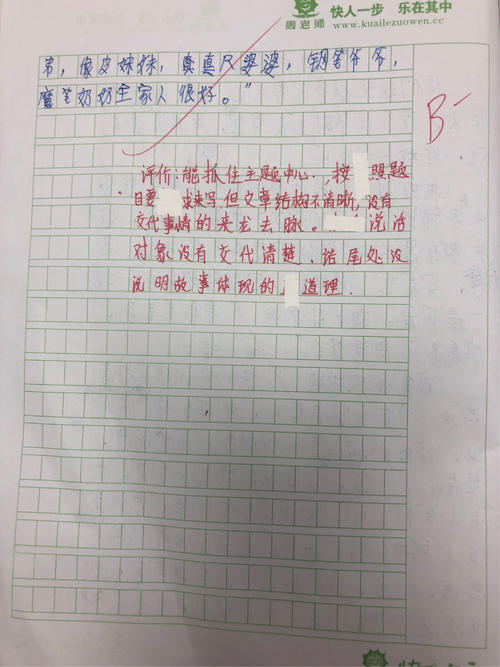 周老师
快人一步 乐在其中
www.kuailezuowen.cc
弟,像皮妹妹,直尺婆婆,钢笔爷爷,
魔笔奶奶全家人很好。”
B-
评价:能抓住主题中心.,按照题
目要求来写.但文章结构不清晰,没有
交代事情的来龙去脉。说话
对象没有交代清楚.结尾处没
说明故事体现的道理.